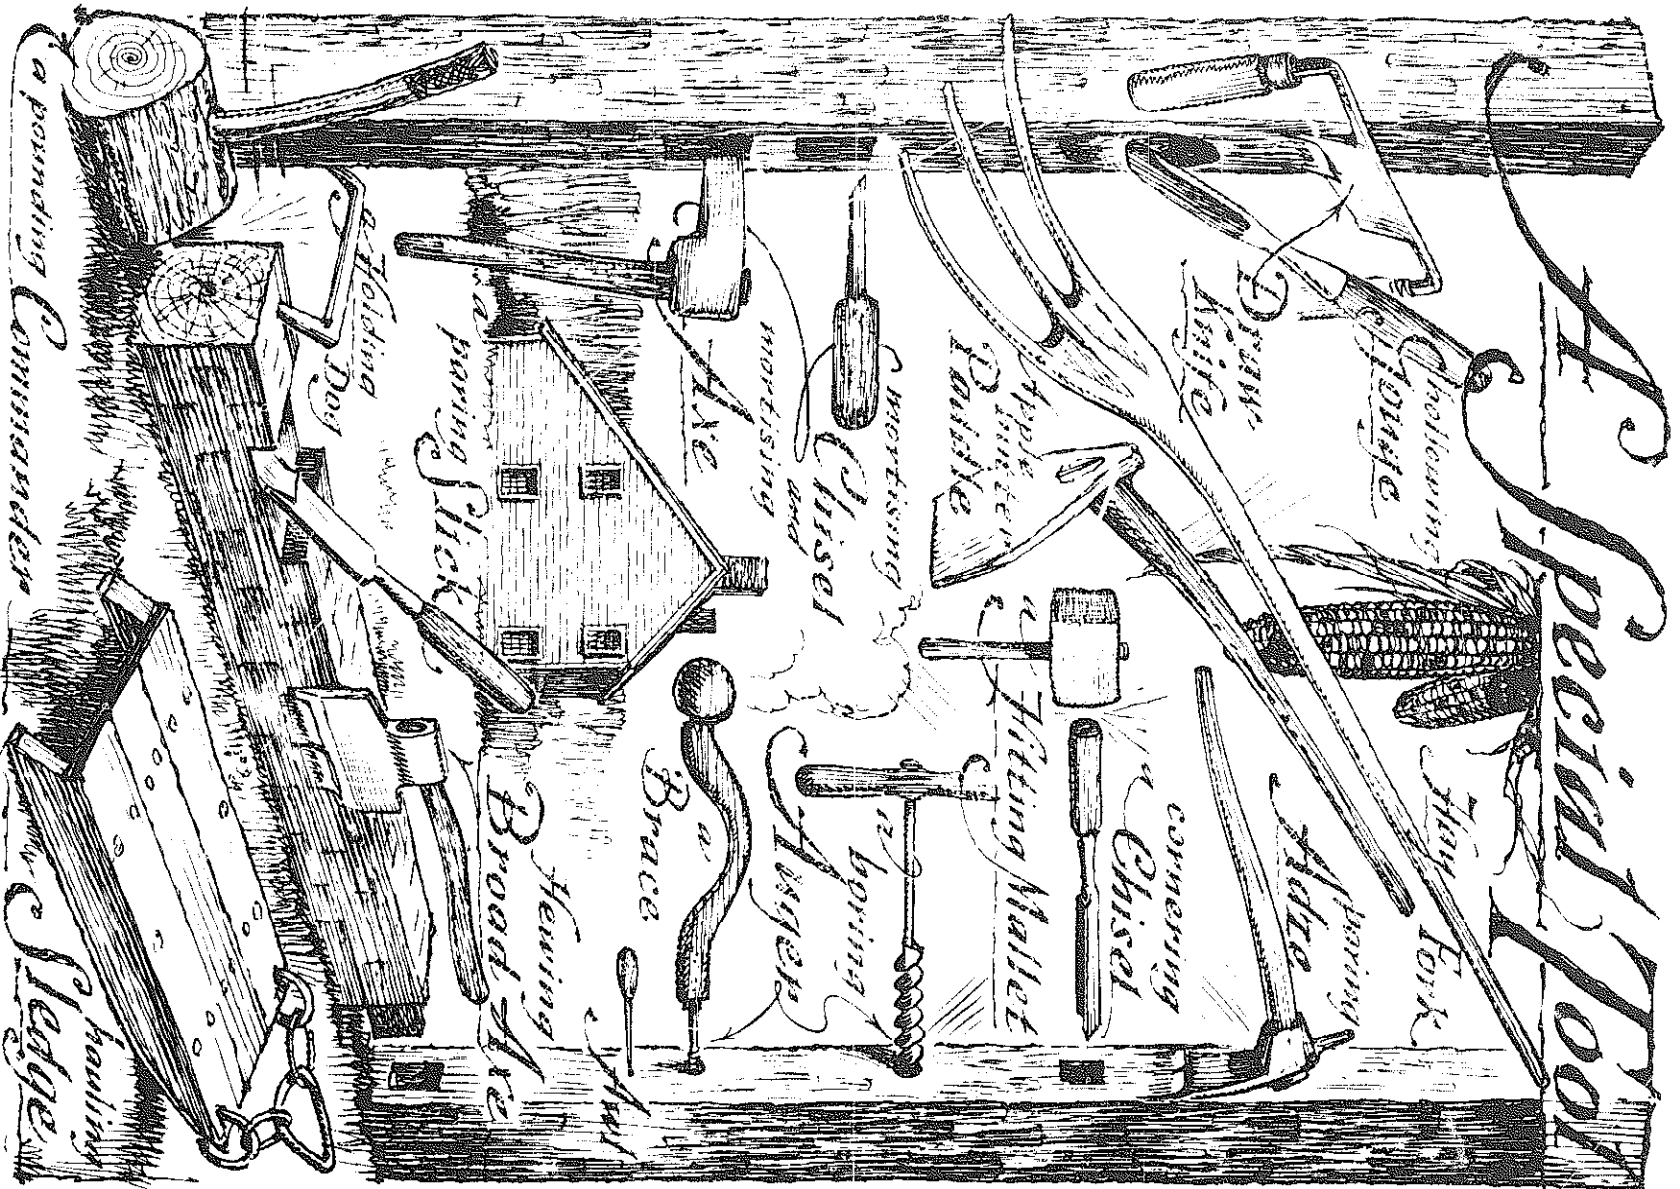 A Special Tool
hollowing
Gouge
Hay Fork
Draw
Knife
paring
Adze
a cornering
Chisel
Apple
Butter
Paddle
a Hitting Mallet
mortising
Chisel
and
mortising
Axe
a boring
Auger
a
Brace
Awl
Hewing
Broad Axe
a
paring
Slick
a Holding
Dog
a pounding Commander
hauling
Sledge